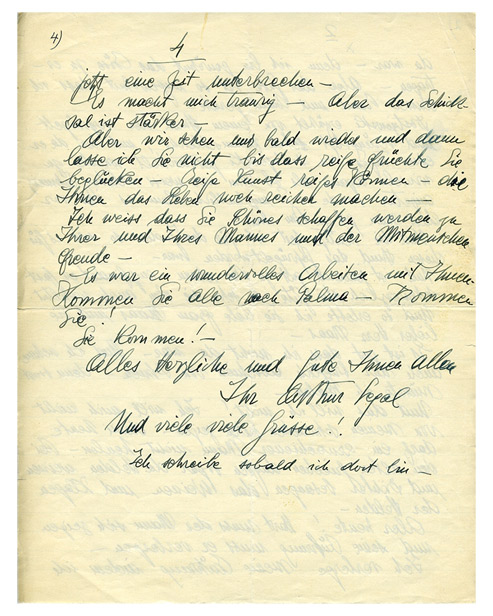 4)
4
jetzt eine Zeit unterbrechen –
Es macht mich traurig – Aber das Schick-
sal ist stärker –
Aber wir sehen uns bald wieder und dann
lasse ich Sie nicht bis dass reife Früchte Sie
beglücken – Reife Kunst reifes Können – die
Ihnen das Leben noch reicher machen –
Ich weiss dass Sie Schönes schaffen werden zu
Ihrer und Ihres Mannes und der Mitmenschen
Freude –
Es war ein wundervolles Arbeiten mit Ihnen
Kommen Sie alle nach Palma – Kommen
Sie!
Sie kommen! –
Alles Herzliche und Gute Ihnen allen
Ihr Arthur Segal
Und viele viele Grüsse!!
Ich schreibe sobald ich dort bin –